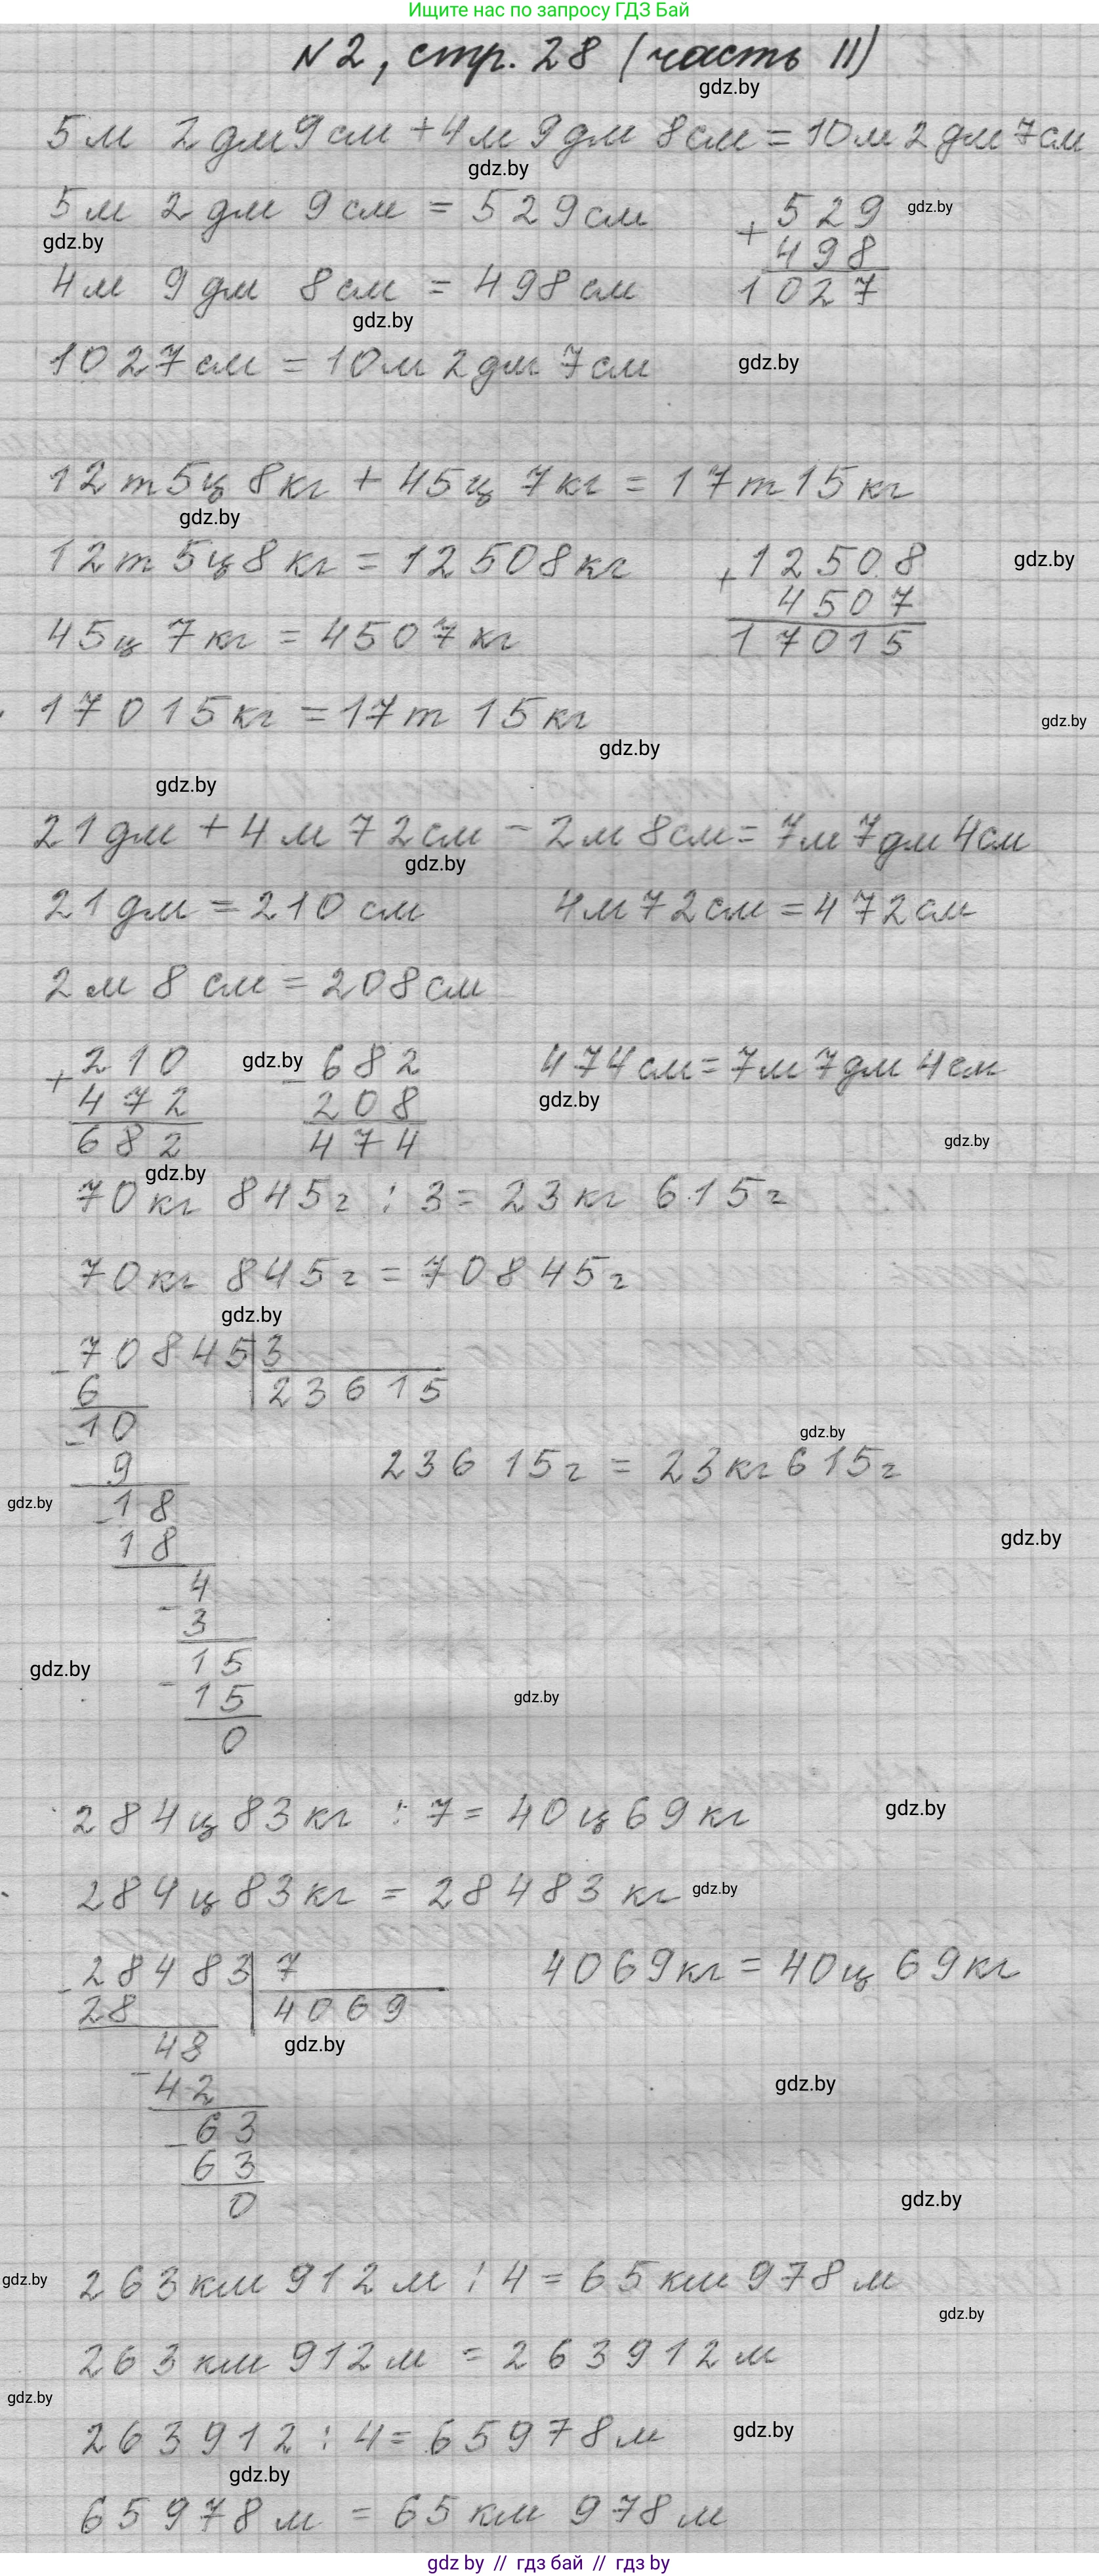 Ищите нас по запросу ГДЗ Бай
N 2, стр. 28 (часть II)
gdz.by
5 м 2 дм 9 см + 4 м 9 дм 8 см = 10 м 2 дм 7 см
gdz.by
5 м 2 дм 9 см = 529 см
+ 529 gdz.by
gdz.by
498
4 м 9 дм 8 см = 498 см
1027
gdz.by
1027 см = 10 м 2 дм 7 см
gdz.by
12 т 5 ц 8 кг + 45 ц 7 кг = 17 т 15 кг
gdz.by
12 т 5 ц 8 кг = 12508 кг
+ 12508 gdz.by
4507
45 ц 7 кг = 4507 кг
17015
17015 кг = 17 т 15 кг
gdz.by
gdz.by
gdz.by
21 дм + 4 м 72 см - 2 м 8 см = 7 м 7 дм 4 см
gdz.by
21 дм = 210 см 4 м 72 см = 472 см
2 м 8 см = 208 см
+ 210 gdz.by - 682 474 см = 7 м 7 дм 4 см
472 208 gdz.by
682 474 gdz.by
gdz.by
70 кг 845 г : 3 = 23 кг 615 г
70 кг 845 г = 70845 г
gdz.by
- 70845 | 3
6 23615
- 10
gdz.by
9 23615 г = 23 кг 615 г
gdz.by - 18
18 gdz.by
- 4
3
gdz.by - 15
15 gdz.by
0
284 ц 83 кг : 7 = 40 ц 69 кг gdz.by
284 ц 83 кг = 28483 кг gdz.by
- 28483 | 7 4069 кг = 40 ц 69 кг
28 4069
- 48 gdz.by
42 gdz.by
- 63
63
0 gdz.by
gdz.by 263 км 912 м : 4 = 65 км 978 м
gdz.by
263 км 912 м = 263912 м
gdz.by
263912 : 4 = 65978 м gdz.by
gdz.by
65978 м = 65 км 978 м
gdz by // гдз бай // гдз by